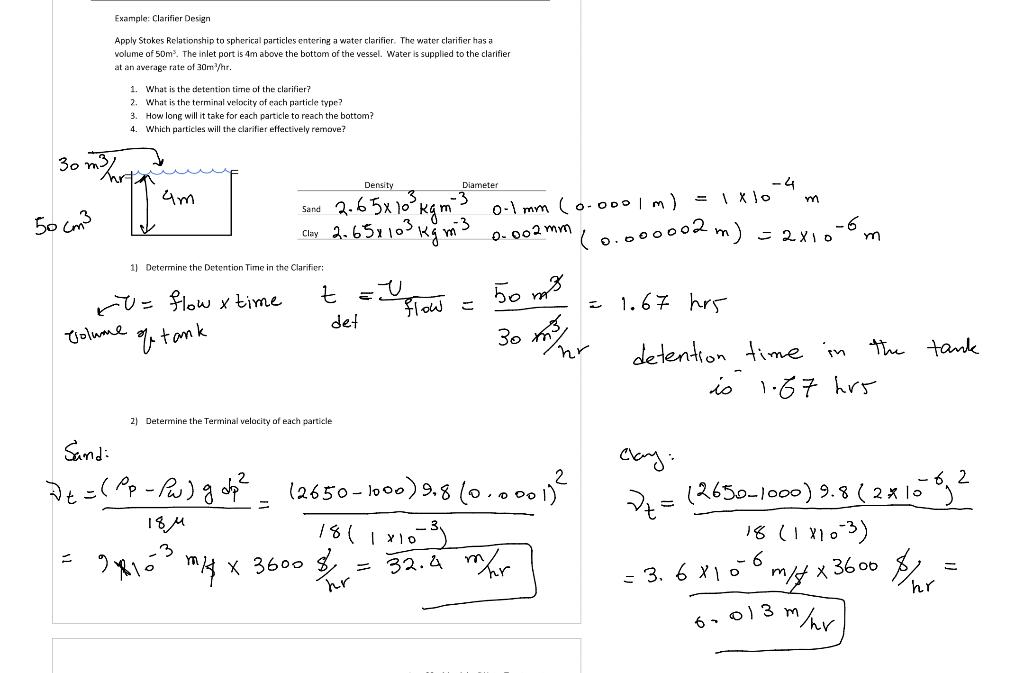 Example: Clarifier Design
Apply Stokes Relationship to spherical particles entering a water clarifier. The water clarifier has a
volume of 50m³. The inlet port is 4m above the bottom of the vessel. Water is supplied to the clarifier
at an average rate of 30m³/hr.
1. What is the detention time of the clarifier?
2. What is the terminal velocity of each particle type?
3. How long will it take for each particle to reach the bottom?
4. Which particles will the clarifier effectively remove?
30 m³/hr
4m
50 cm³
Density Diameter
Sand 2.65x10³ kg m⁻³ 0.1 mm (0.0001 m) = 1 x 10⁻⁴ m
Clay 2.65x10³ kg m⁻³ 0.002mm (0.000002 m) = 2x10⁻⁶ m
1) Determine the Detention Time in the Clarifier:
V = flow x time t det = V/flow = 50 m³ / 30 m³/hr = 1.67 hrs
Volume of tank
detention time in the tank
is 1.67 hrs
2) Determine the Terminal velocity of each particle
Sand:
νt = (ρp - ρw) g dp² / 18μ = (2650-1000) 9.8 (0.0001)² / 18 (1x10⁻³)
= 9x10⁻³ m/s x 3600 s/hr = 32.4 m/hr
Clay:
νt = (2650-1000) 9.8 (2x10⁻⁶)² / 18 (1x10⁻³)
= 3.6 x10⁻⁶ m/s x 3600 s/hr =
0.013 m/hr